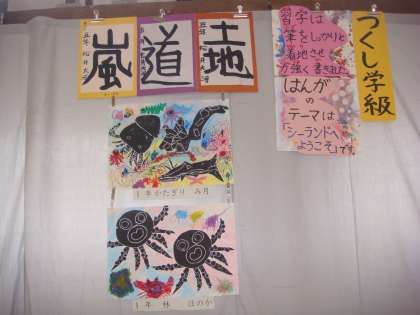 つくし学級
習字は
筆をしっかりと
着地させ
力強く書きました
はんがの
テーマは
「シーランドへ
ようこそ」です
土地
道
嵐
1年 かたぎり み月
1年 林 ほのか